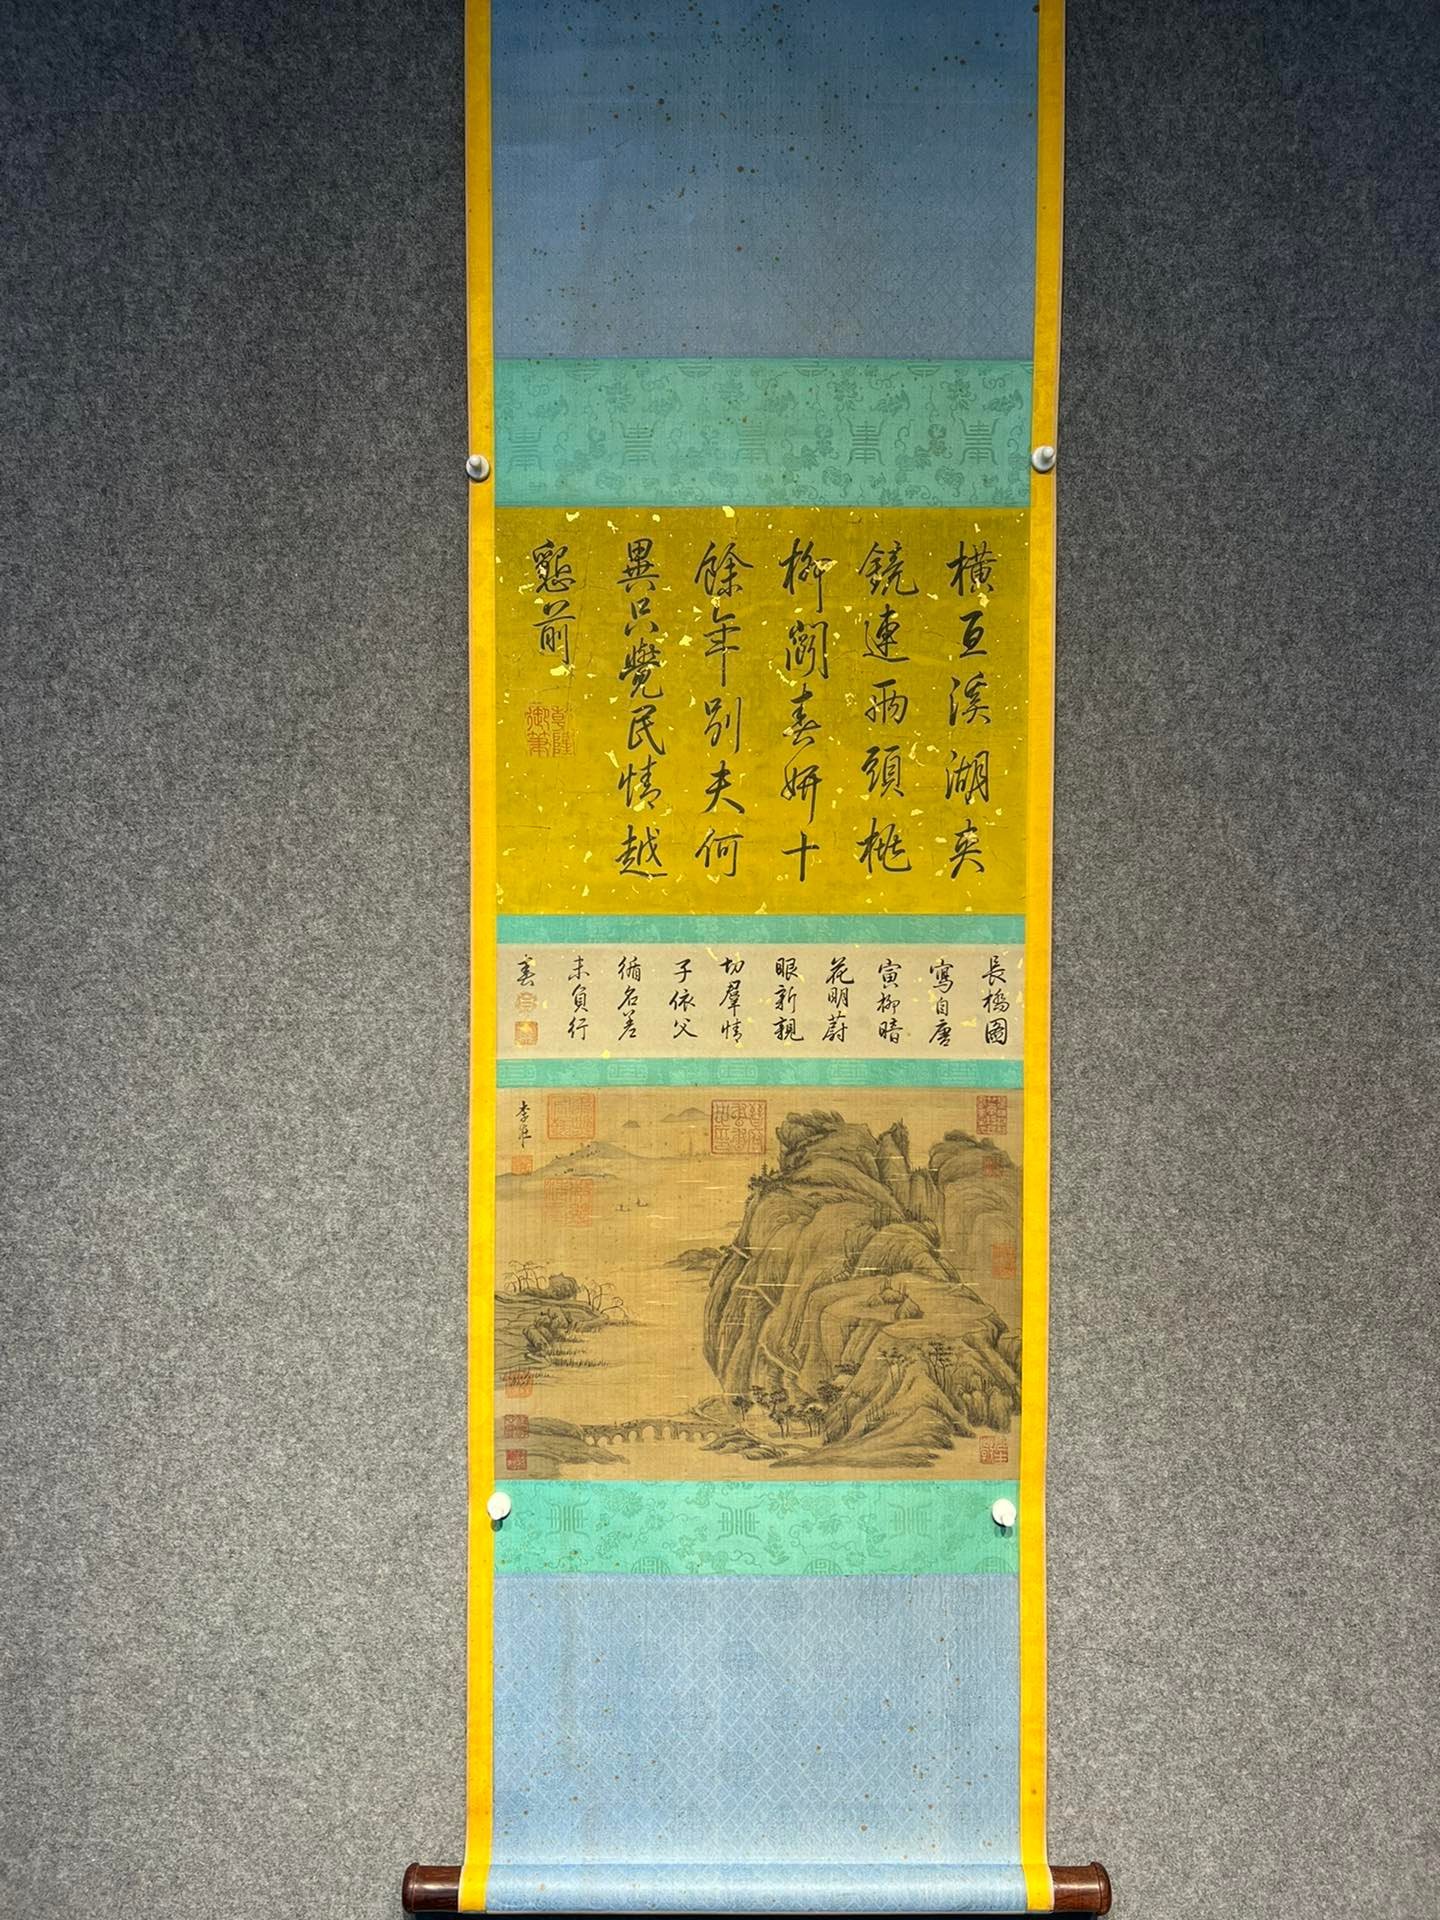 橫亙溪湖夾
鏡連兩頭桃
柳鬭春妍十
餘年別夫何
異只覺民情越
懇前
乾隆
御筆
長橋圖
寫自唐
寅柳暗
花明蔚
眼新親
切羣情
子依父
循名差
未負行
春
李